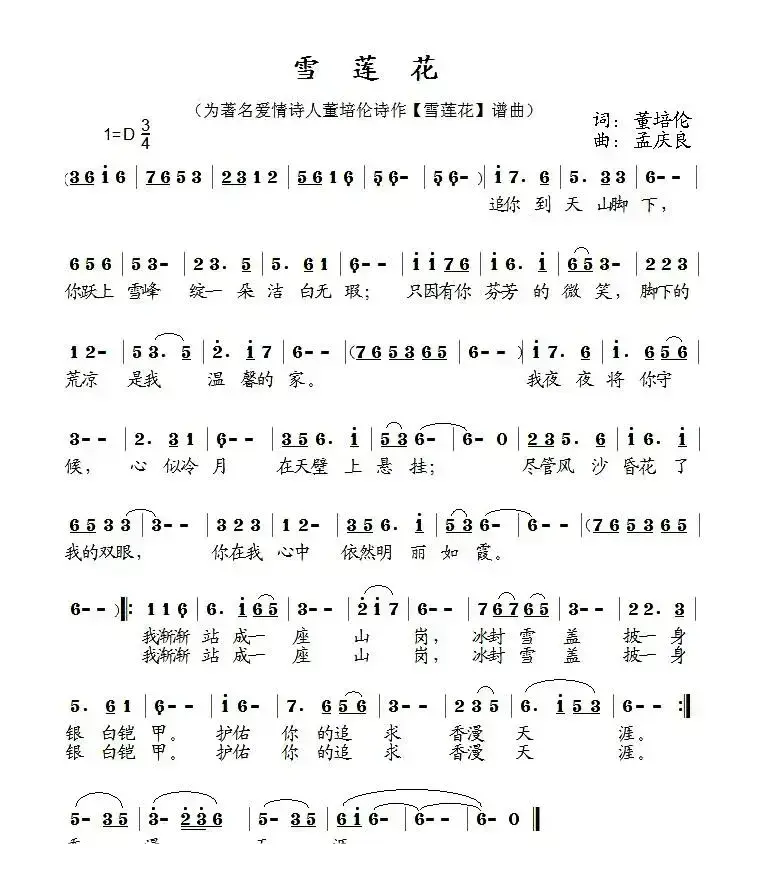 雪 莲 花
（为著名爱情诗人董培伦诗作【雪莲花】谱曲）
1=D 3/4
词：董培伦
曲：孟庆良
(3 6 i 6 | 7 6 5 3 | 2 3 1 2 | 5 6 1 6 | 5 6 - | 5 6 - ) | i 7. 6 | 5. 3 3 | 6 - - |
追你 到 天 山脚 下，
6 5 6 | 5 3 - | 2 3. 5 | 5. 6 1 | 6 - - | i i 7 6 | i 6. i | 6 5 3 - | 2 2 3 |
你跃上 雪峰 绽一 朵 洁 白无 瑕； 只因有你 芬芳 的 微 笑，脚下的
1 2 - | 5 3. 5 | 2. i 7 | 6 - - | (7 6 5 3 6 5 | 6 - - ) | i 7. 6 | i. 6 5 6 |
荒凉 是我 温 馨的 家。 我夜 夜 将 你守
3 - - | 2. 3 1 | 6 - - | 3 5 6. i | 5 3 6 - | 6 - 0 | 2 3 5. 6 | i 6. i |
候， 心 似冷 月 在天壁 上 悬 挂； 尽管风 沙 昏花 了
6 5 3 3 | 3 - - | 3 2 3 | 1 2 - | 3 5 6. i | 5 3 6 - | 6 - - | (7 6 5 3 6 5 |
我的双眼， 你在我 心中 依然明 丽 如 霞。
6 - - ) |: 1 1 6 | 6. i 6 5 | 3 - - | 2 i 7 | 6 - - | 7 6 7 6 5 | 3 - - | 2 2. 3 |
我渐渐 站 成一 座 山 岗， 冰封 雪 盖 披一 身
我渐渐 站 成一 座 山 岗， 冰封 雪 盖 披一 身
5. 6 1 | 6 - - | i 6 - | 7. 6 5 6 | 3 - - | 2 3 5 | 6. i 5 3 | 6 - - :|
银 白铠 甲。 护佑 你 的追 求 香漫 天 涯。
银 白铠 甲。 护佑 你 的追 求 香漫 天 涯。
5 - 3 5 | 3 - 2 3 6 | 5 - 3 5 | 6 i 6 - | 6 - - | 6 - 0 ‖